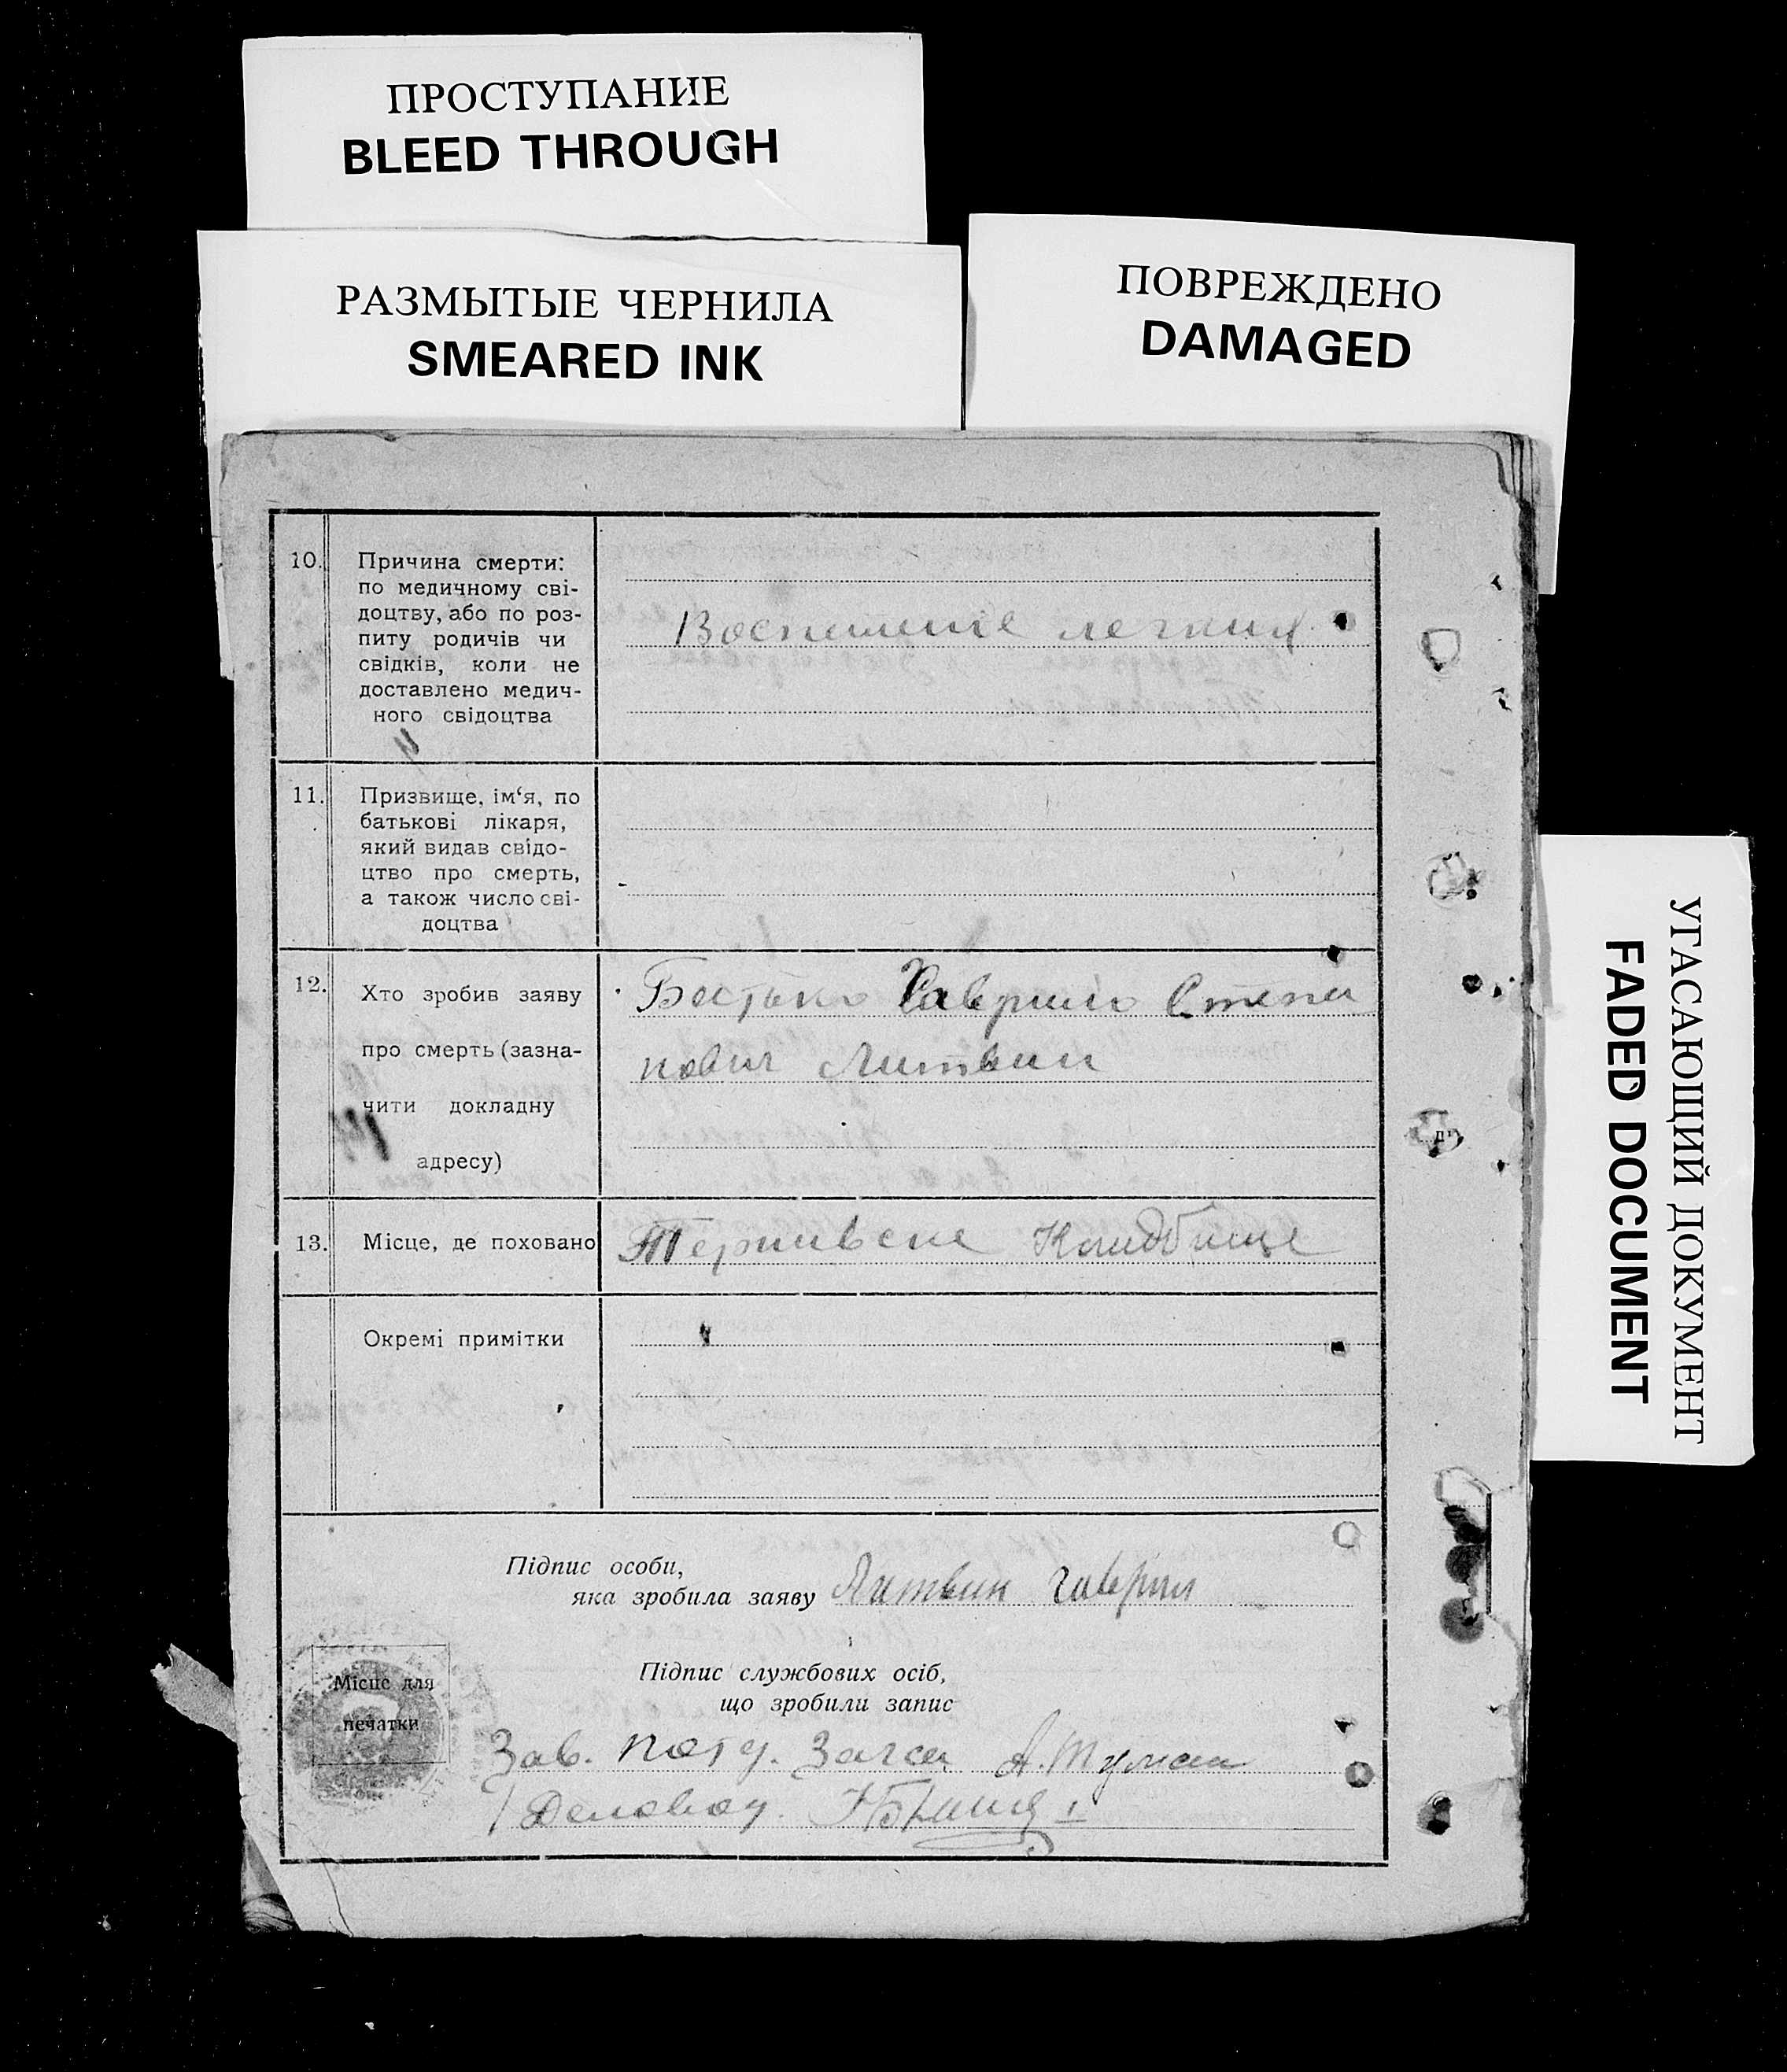 ПРОСТУПАНИЕ
BLEED THROUGH
РАЗМЫТЫЕ ЧЕРНИЛА
SMEARED INK
ПОВРЕЖДЕНО
DAMAGED
УГАСАЮЩИЙ ДОКУМЕНТ
FADED DOCUMENT
10.
Причина смерти:
по медичному сві-
доцтву, або по роз-
питу родичів чи
свідків, коли не
доставлено медич-
ного свідоцтва
Воспаление легких
11.
Призвище, ім‘я, по
батькові лікаря,
який видав свідо-
цтво про смерть,
а також число сві-
доцтва
12.
Хто зробив заяву
про смерть (зазна-
чити докладну
адресу)
Гаврило Степа
нович Литвин
13.
Місце, де поховано
Кладбище
Окремі примітки
Підпис особи,
яка зробила заяву Литвин Гаврил
Підпис службових осіб,
що зробили запис
Місце для
печатки
Зав. Загса
Деловод.